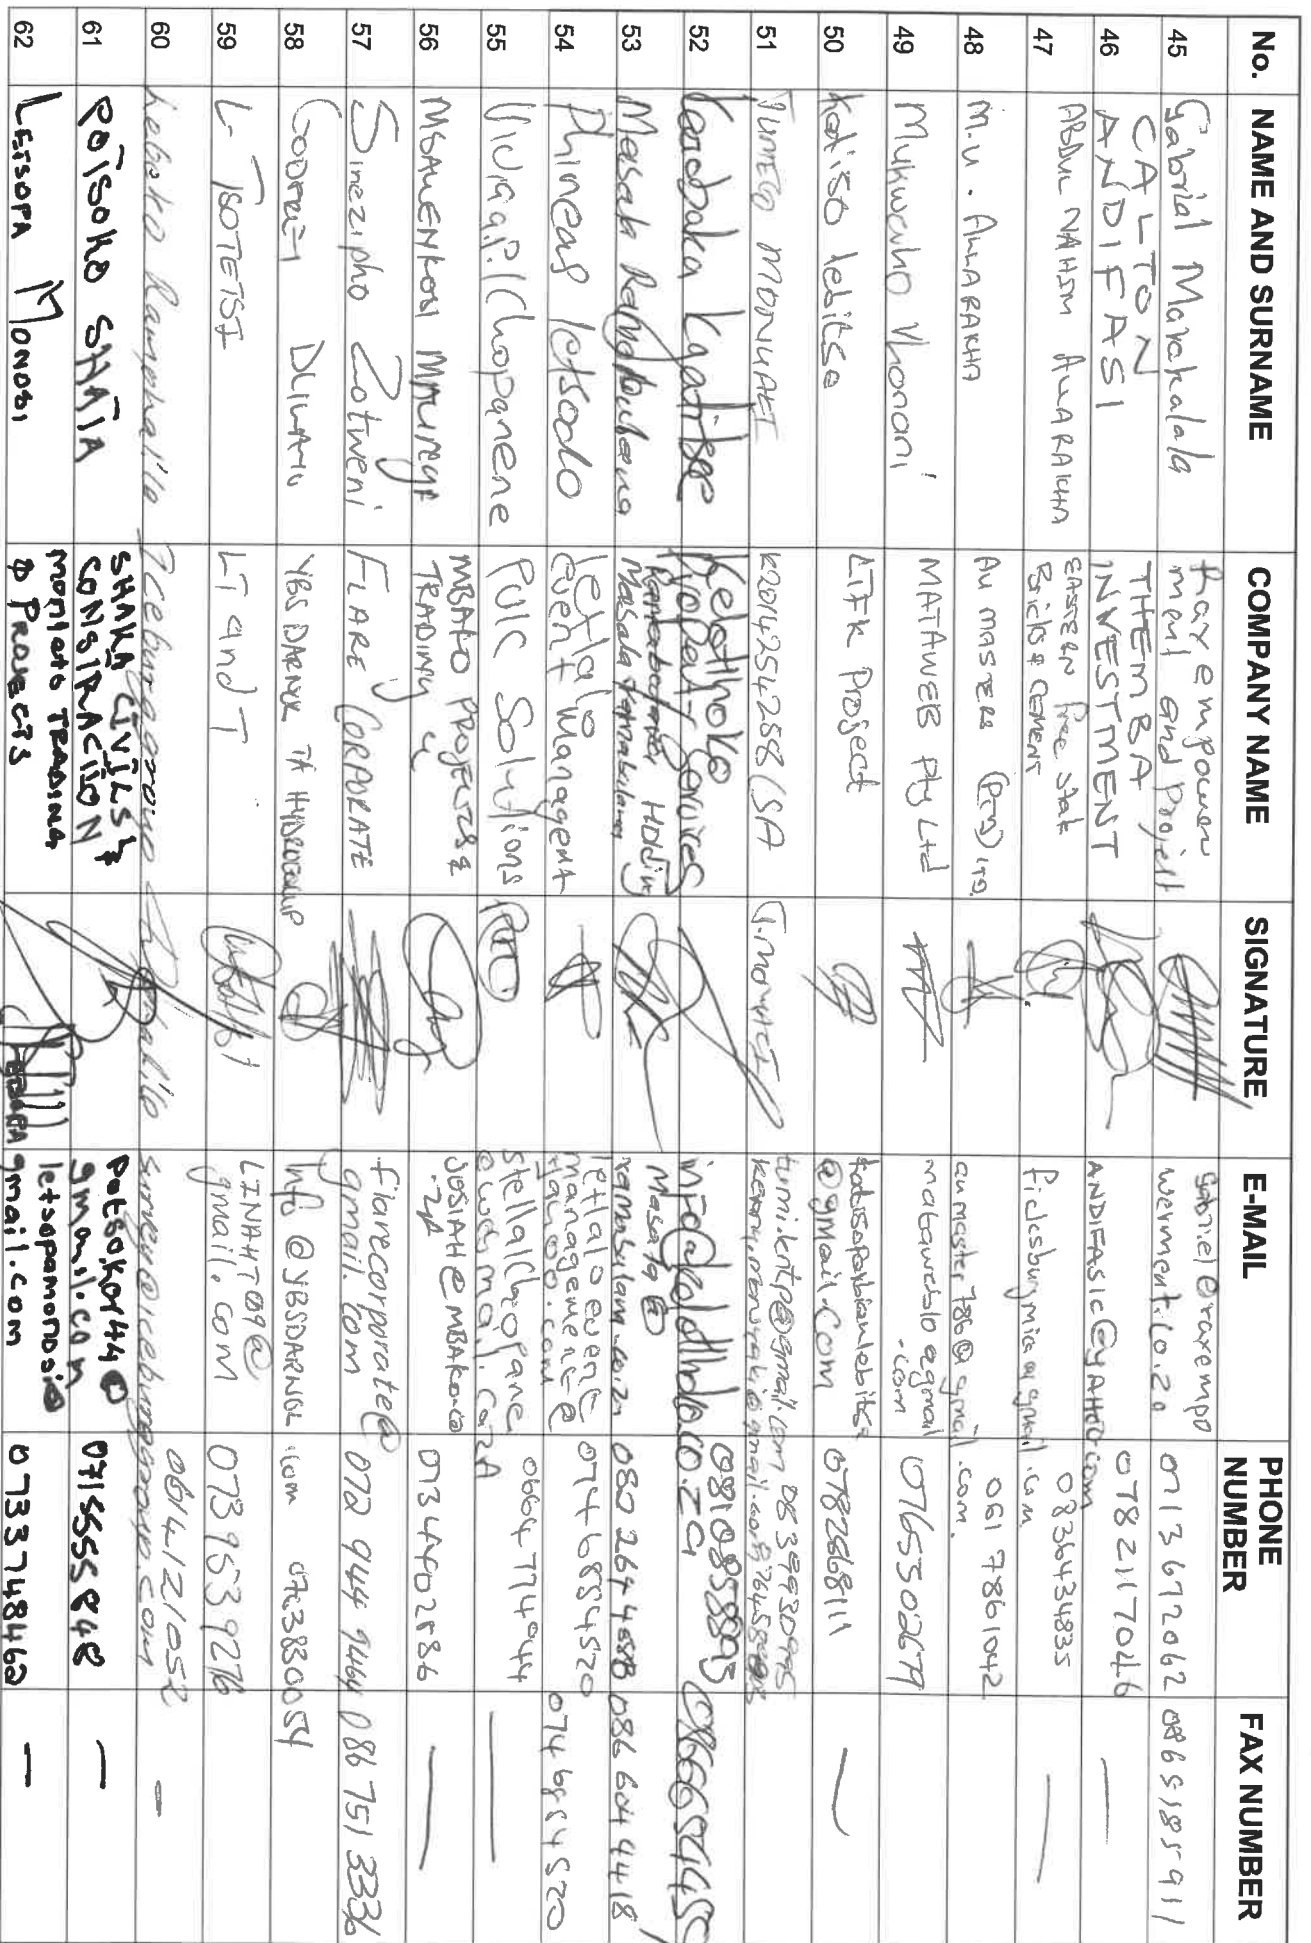 No. NAME AND SURNAME COMPANY NAME SIGNATURE E-MAIL PHONE NUMBER FAX NUMBER
45 Gabrial Marakalala Rax empower ment and Project gabriel@raxempo werment.co.za 0713672062 0865185911
46 CALTON ANDIFASI THEMBA INVESTMENT ANDIFASIC@YAHOO.com 0782117046 —
47 ABDUL NAHIM ALLARAKHA EASTERN Free State Bricks & CEMENT ficksburgmia@gmail.com 0836434835 —
48 M.U. ALLARAKHA Au MASTERS (PTY) LTD. aumaster786@gmail.com. 061 7861042
49 Mukwevho Vhonani MATAWEB Pty Ltd matawebio@gmail.com 0765502679
50 Katiso lebitsa LTK Project @gmail.com 0782868111 —
51 TUMELO MONUAEI K2014254258 (SA T.Monuaei 0839930995
52 Kgatitsoe Keletlhoko Projects Services info@keletlhoko.co.za 0810858893
53 Masala Ramabulana Masala Ramabulana Holding Masala@ ramabulana.co.za 080 264 4888 086 604 4418
54 Phineas letsoalo letlalo event Managent letlalo event management@yahoo.com 0746854520 0746854520
55 PUIC Solutions stellalChaopane @webmail.co.ZA 0664774944 —
56 MBAKO PROJECTS & TRADING JOSIAH@MBAKO.co.za 0734402886 —
57 Sinezipho Zotweni FLARE CORPORATE flarecorporate@gmail.com 072 944 9464 086 751 3336
58 GODFREY DLHAMU YBS DARNOL TA HYDROGROUP info@YBSDARNOL.com 0763830054
59 L. TSOTETSI LT and T LINAHT09@gmail.com 0739539276
60 Lebako Ramphalile Iceburg group simeyn@iceburggroup.com 0614121052 -
61 POTSOKO SHATA SHAKA CIVILS & CONSTRACTION potsoko144@gmail.com 0715555848 —
62 LETSOPA MONOSI monloto TRADING & PROJECTS letsopamonosi@gmail.com 0733748460 —